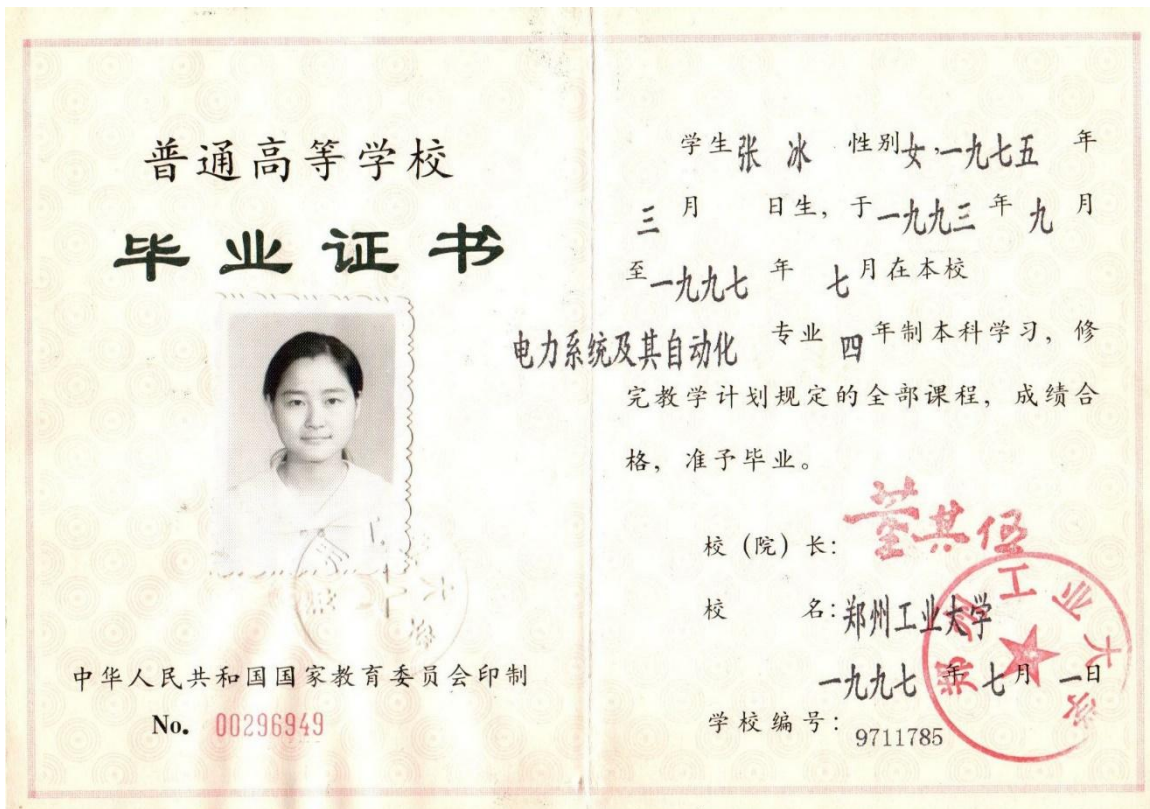 普通高等学校
毕业证书
中华人民共和国国家教育委员会印制
No. 00296949
学生张冰 性别女,一九七五 年
三 月 日生, 于一九九三 年 九 月
至一九九七 年 七月在本校
电力系统及其自动化 专业 四 年制本科学习, 修
完教学计划规定的全部课程, 成绩合
格, 准予毕业。
校 (院) 长: 董其伍
校 名: 郑州工业大学
一九九七 年 七月 一日
学校编号: 9711785
郑州工业大学